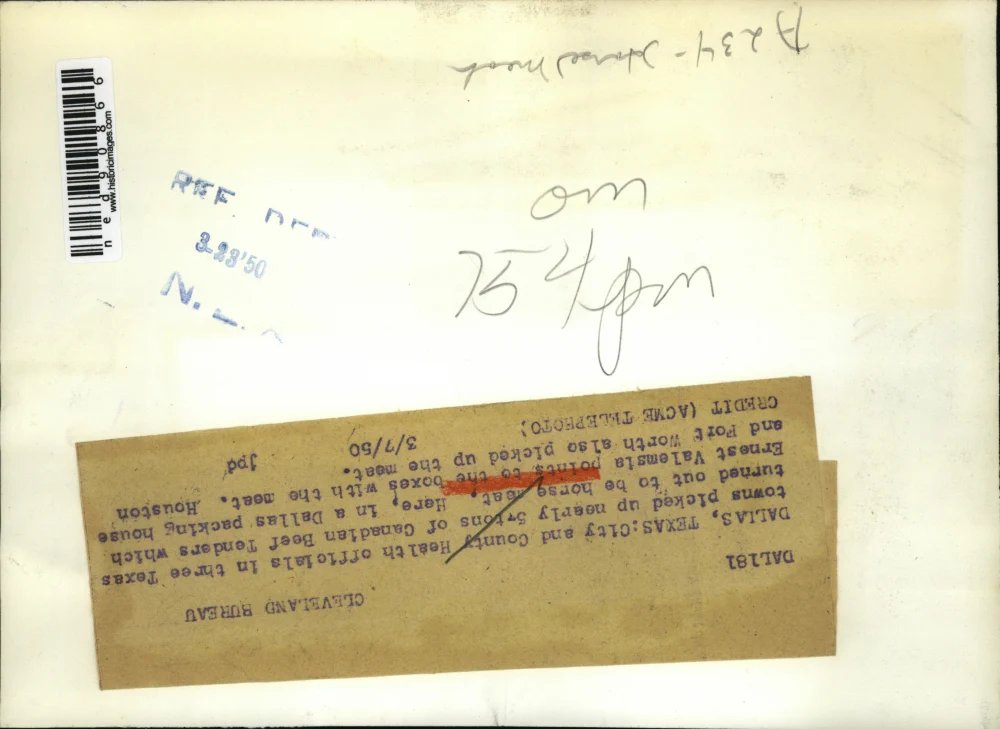 A234 - Horse Meat
www.historicimages.com
ned90866
REF DEP
3-23'50
N.
DAL181
CLEVELAND BUREAU
DALLAS, TEXAS:City and County Health officials in three Texas
towns picked up nearly 5 tons of Canadian Beef Tenders which
turned out to be horse meat. Here, in a Dallas packing house
Ernest Valemsia points to the boxes with the meat. Houston
and Fort Worth also picked up the meat.
CREDIT (ACME TELEPHOTO) 3/7/50 jpd